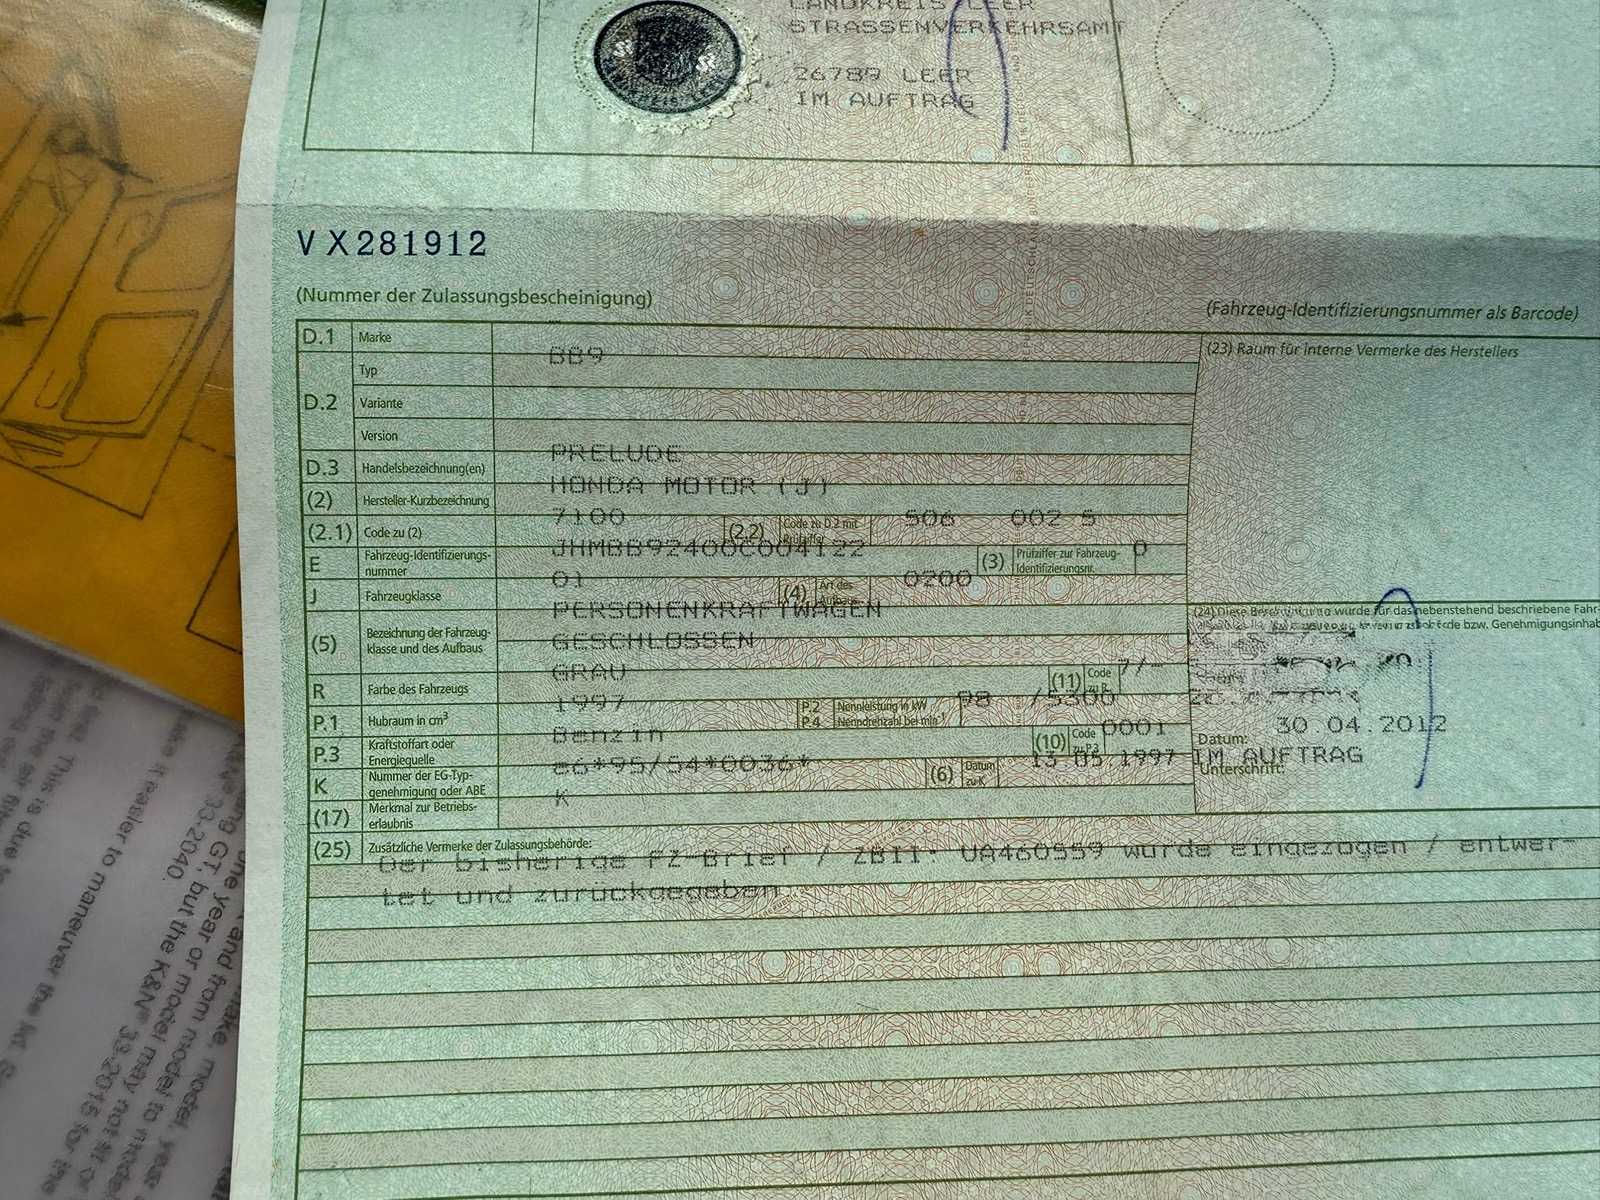 LANDKREIS LEER
STRASSENVERKEHRSAMT
26789 LEER
IM AUFTRAG
VX281912
(Nummer der Zulassungsbescheinigung)
(Fahrzeug-Identifizierungsnummer als Barcode)
D.1 Marke
BB9
(23) Raum für interne Vermerke des Herstellers
D.2 Typ
Variante
Version
PRELUDE
D.3 Handelsbezeichnung(en)
HONDA MOTOR (J)
(2) Hersteller-Kurzbezeichnung
7100 506 002 5
(2.1) Code zu (2) (2.2) Code zu D.2 mit Prüfziffer
JHMBB92400C004122 0
E Fahrzeug-Identifizierungs-
nummer
(3) Prüfziffer zur Fahrzeug-
Identifizierungsnr.
01 0200
J Fahrzeugklasse (4) Art des Aufbaus
PERSONENKRAFTWAGEN
(5) Bezeichnung der Fahrzeug-
klasse und des Aufbaus
GESCHLOSSEN
GRAU 7/-
R Farbe des Fahrzeugs (11) Code zu R
1997 98 /5300
P.1 Hubraum in cm³ P.2 Nennleistung in kW
P.4 Nenndrehzahl bei min⁻¹
Benzin 0001
P.3 Kraftstoffart oder
Energiequelle
(10) Code zu P.3
e6*95/54*0036* 13.05.1997
K Nummer der EG-Typ-
genehmigung oder ABE
(6) Datum zu K
K
(17) Merkmal zur Betriebs-
erlaubnis
(24) Diese wurde für das nebenstehend beschriebene Fahr-
bzw. Genehmigungsinhab
30.04.2012
Datum:
IM AUFTRAG
Unterschrift:
(25) Zusätzliche Vermerke der Zulassungsbehörde:
Der bisherige FZ-Brief / ZBII: UA460559 wurde eingezogen / entwer-
tet und zurückgegeben